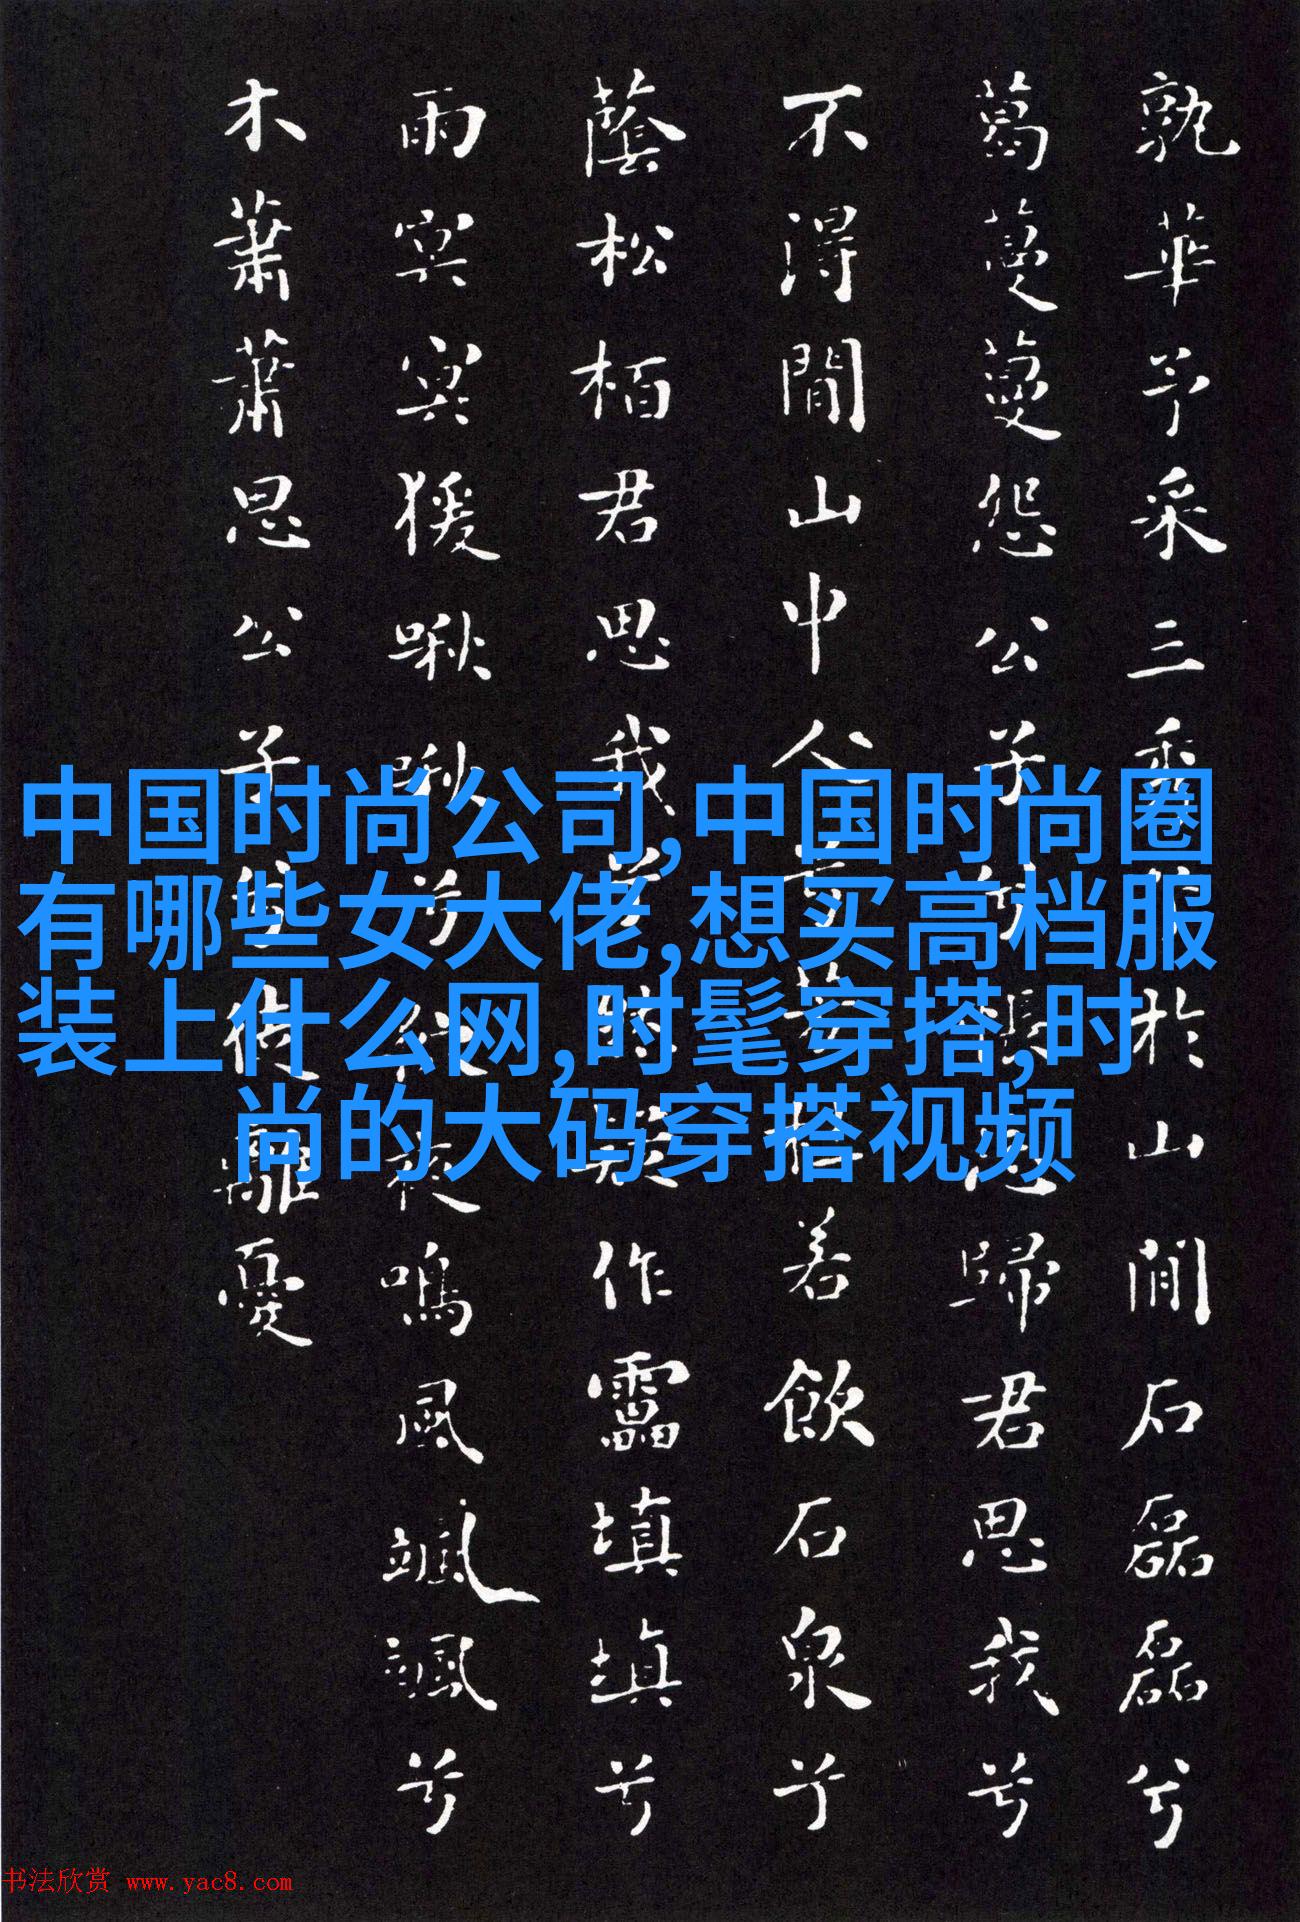 孰華予采三秀兮於山閒石磊磊兮
葛蔓蔓怨公子兮悵忘歸君思我兮
不得間山中人兮芳杜若飲石泉兮
蔭松栢君思我兮然疑作靁填填兮
雨冥冥猨啾啾兮狖夜鳴風颯颯兮
木蕭蕭思公子兮徒離憂
中国时尚公司,中国时尚圈
有哪些女大佬,想买高档服
装上什么网,时髦穿搭,时
尚的大码穿搭视频
书法欣赏 www.yac8.com